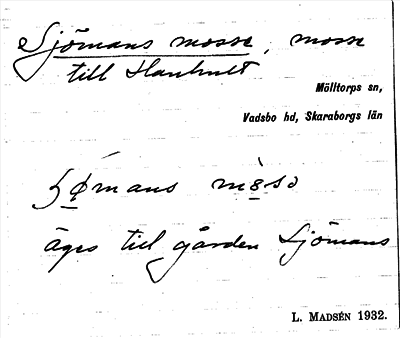 Sjömans mosse, mosse
till Haukult
Mölltorps sn,
Vadsbo hd, Skaraborgs län
äges till gården Sjömans
L. MADSÉN 1932.